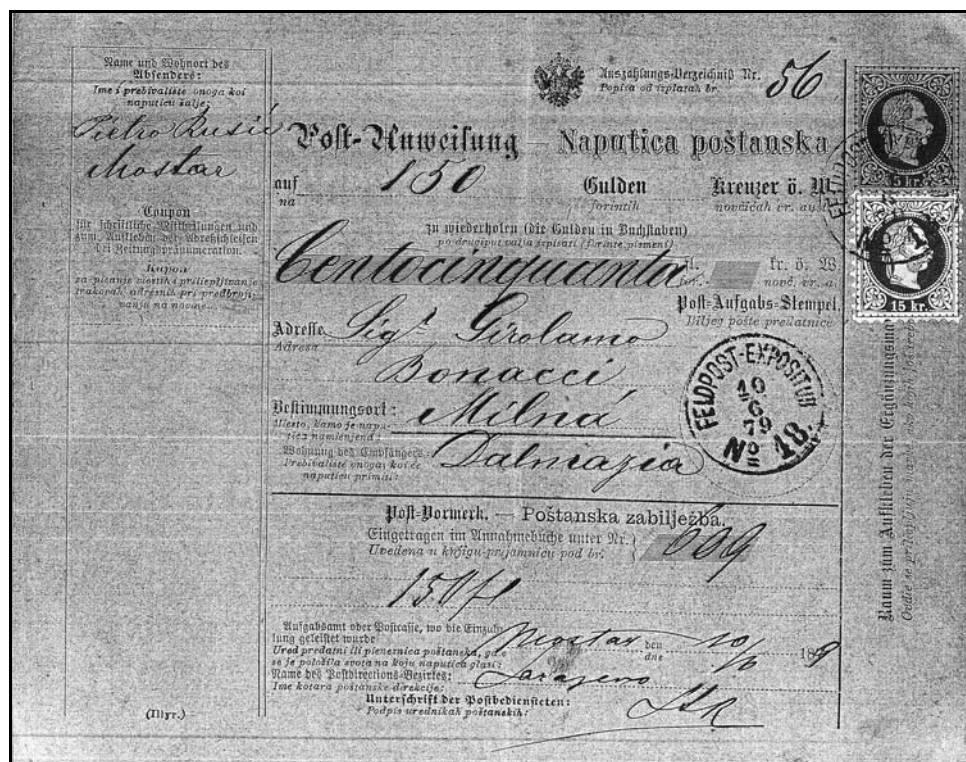 Name und Wohnort des
Absenders:
Ime i prebivalište onoga koi
naputicu šalje:
Pietro Rusić
Mostar
Coupon
für schriftliche Mittheilungen und
zum Aufkleben der Adreßschleifen
bei Zeitungspränumeration.
Kupon
za pisanje viestih i priliepljivanje
trakovah adresnih pri predbroji-
vanju na novine.
(Illyr.)
Auszahlungs-Verzeichniß Nr.
Popisa od izplatah br.
56
Post-Anweisung — Naputica poštanska
auf
na
150
Gulden
forintih
Kreuzer ö. W.
novčićah vr. aust.
zu wiederholen (die Gulden in Buchstaben)
po drugiput valja izpisati (forinte pismeni)
Centocinquanta
fl.
kr. ö. W.
novč. vr. a.
Post-Aufgabs-Stempel.
Biljeg pošte predatnice
Adresse
Adresa
Sigr. Girolamo
Bonacci
Bestimmungsort:
Miesto, kamo je napu-
tica namienjena:
Milná
Wohnung des Empfängers:
Prebivalište onoga, koi će
naputicu primiti:
Dalmazia
FELDPOST-EXPOSITUR
10
6
79
No 18.
Post-Vormerk. — Poštanska zabilježba.
Eingetragen im Annahmebuche unter Nr.
Uvedena u knjigu-prijamnicu pod br.
609
150 fl
Aufgabsamt oder Postcasse, wo die Einzah-
lung geleistet wurde
Ured predatni ili pieneznica poštanska, gd e
se je položila svota na koju naputica glasi:
Mostar
den
dne
10/6 1879
Name des Postdirections-Bezirkes:
Ime kotara poštanske direkcije:
Sarajevo
Unterschrift der Postbediensteten:
Podpis urednikah poštanskih:
5 kr.
15 kr.
Raum zum Aufkleben der Ergänzungsma
Ovdie se prilićpljuju marke